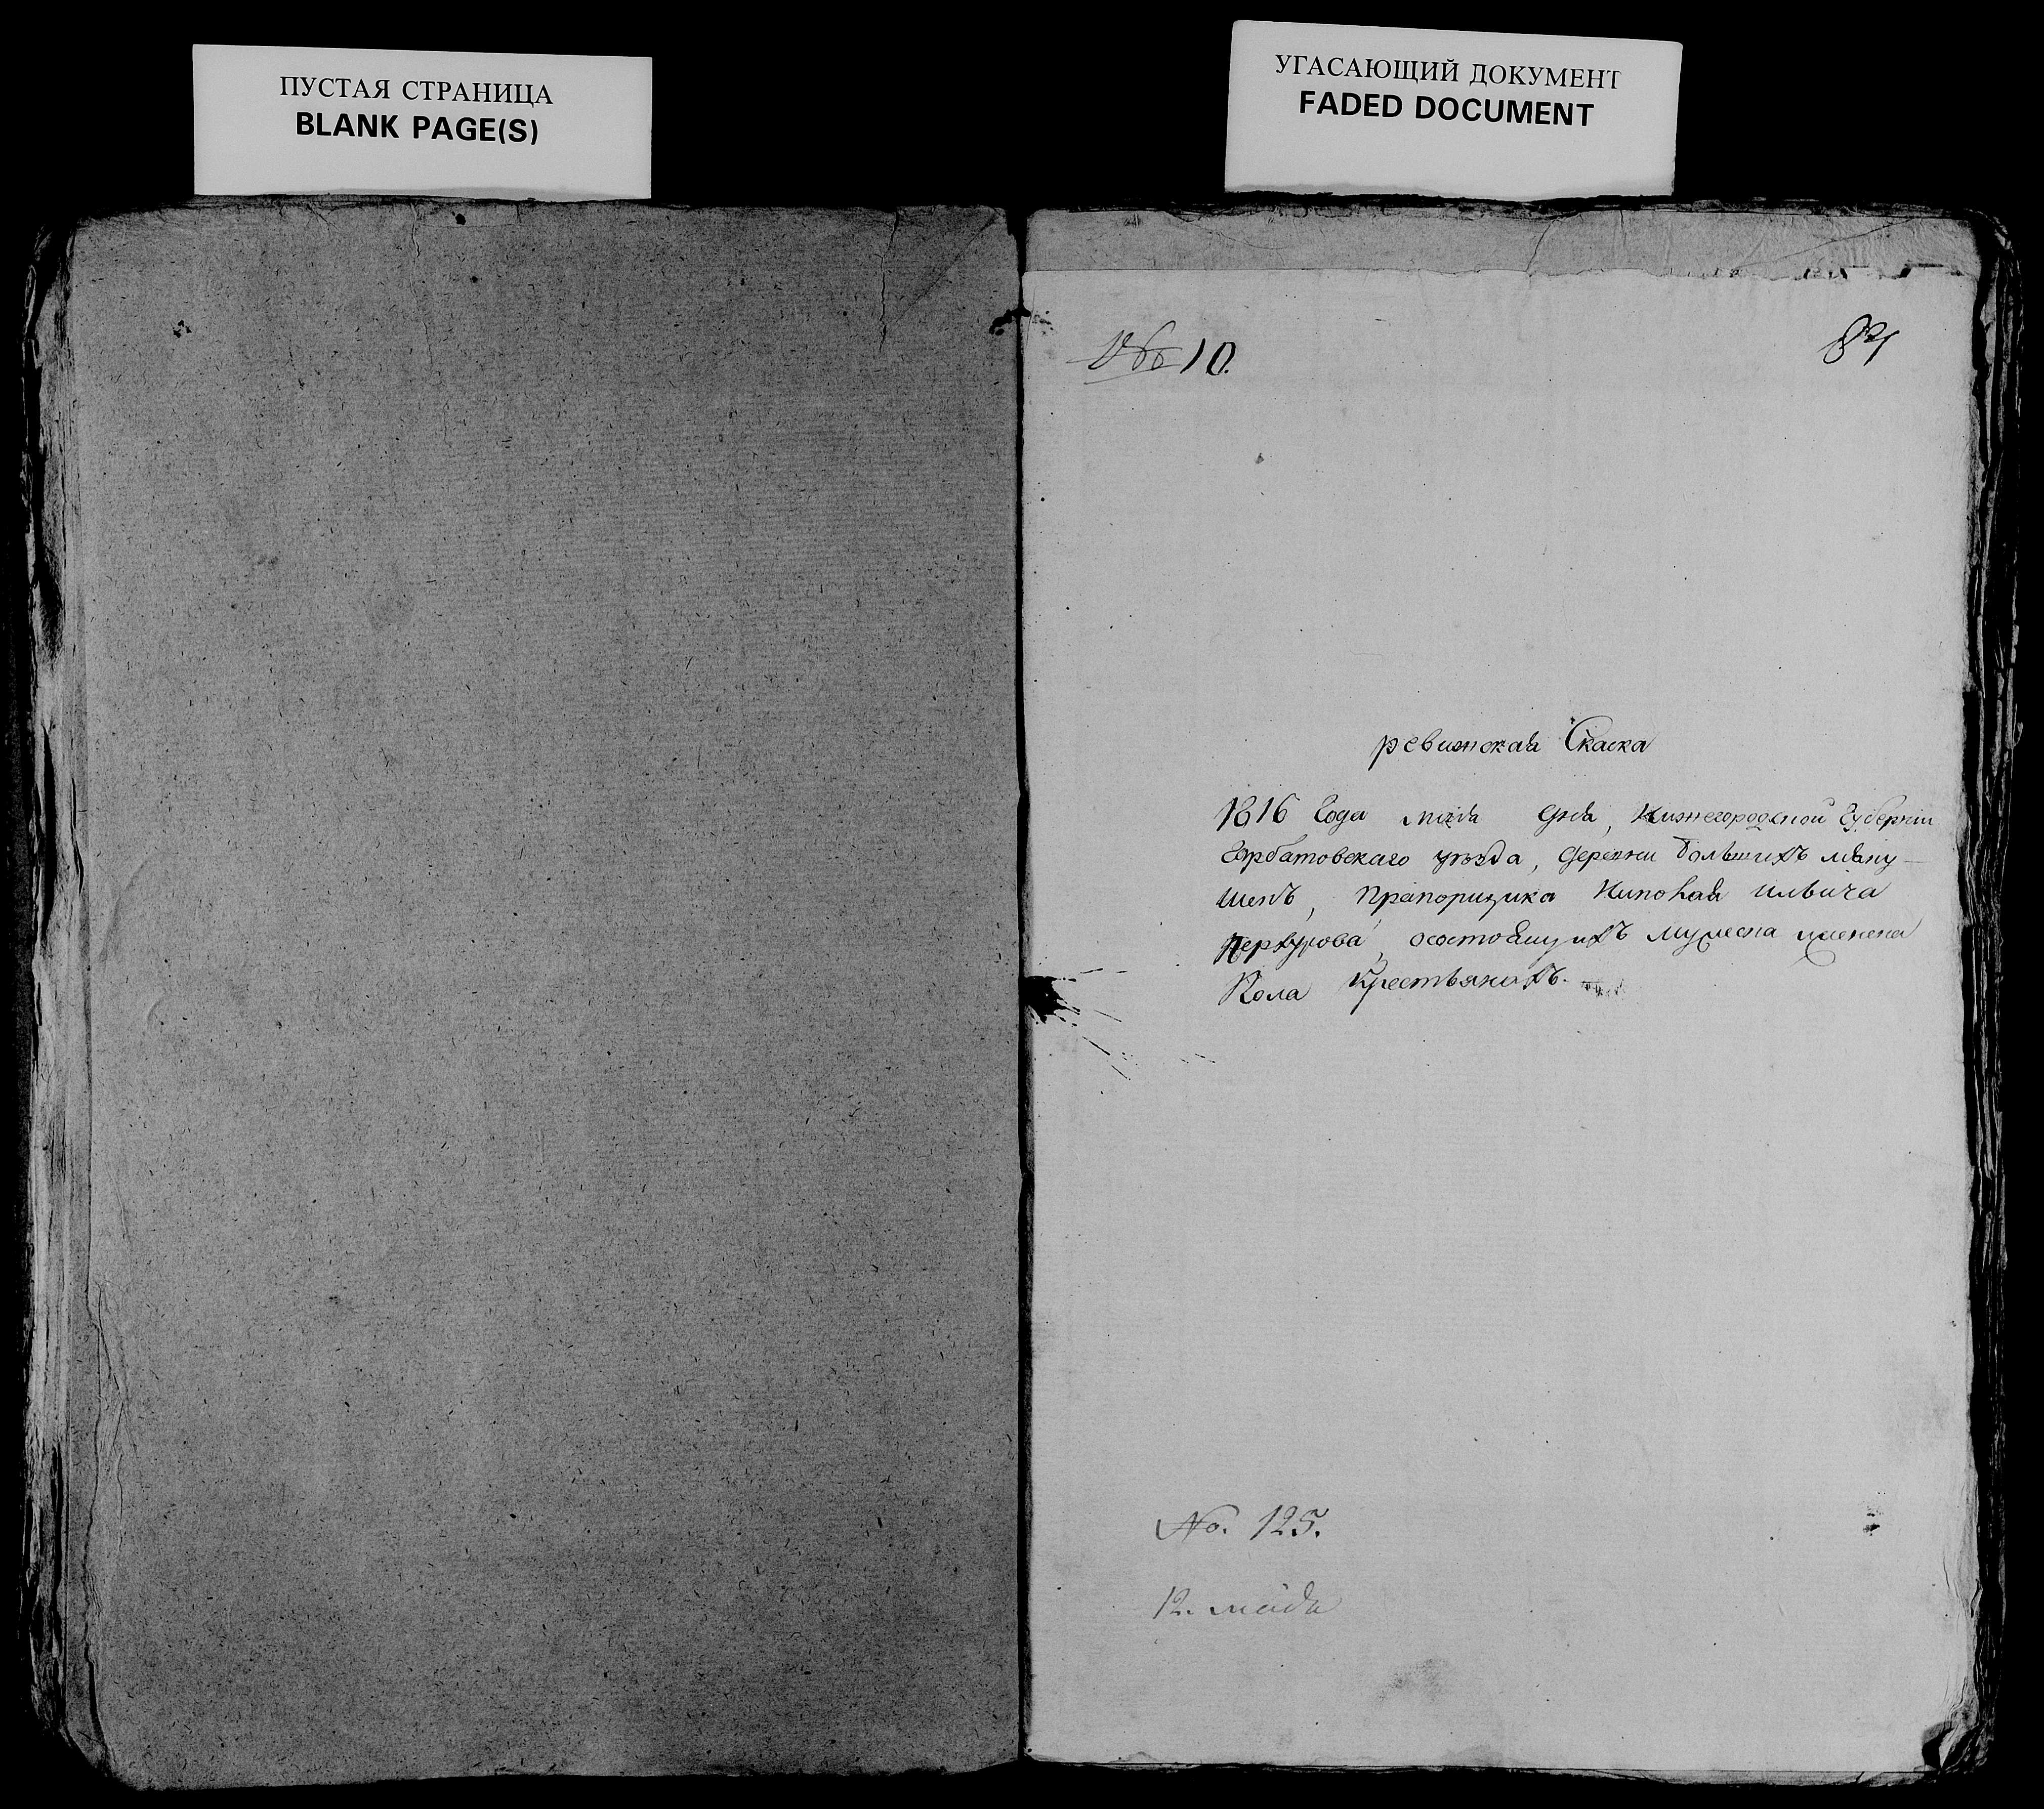 ПУСТАЯ СТРАНИЦА
BLANK PAGE(S)
УГАСАЮЩИЙ ДОКУМЕНТ
FADED DOCUMENT
№ 10.
ревижская Скаска
1816 Года маия дня, Нижегородской Губернии
Гарбатовскаго уезда, деревни большихъ маку-
шенъ, прапорщика Николая ильича
осостоящихъ мужеска и женска
Пола крестьянахъ.
No. 125.
12. маия